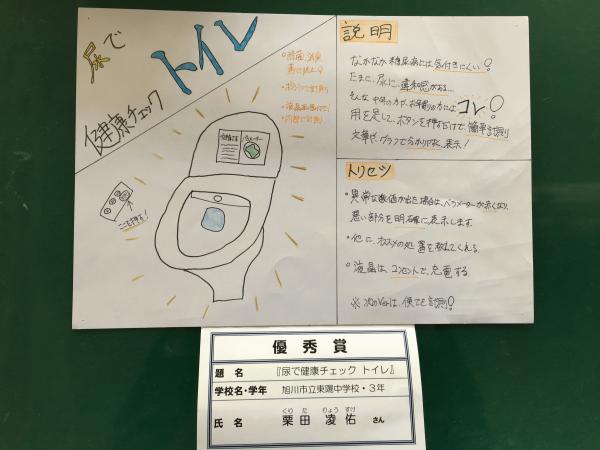 尿で
健康チェック
トイレ
・除菌、消臭
・ボタン1つで計測
・液晶画面付で!
ここを押す!
説明
なかなか糖尿病には気付きにくい!
たまに、尿に違和感がある...
そんな中年の方や、お年寄りの方にはコレ!
用を足して、ボタンを押すだけで、簡単計測
文章や、グラフで分かりやすく表示!
トリセツ
・異常な数値が出た場合は、バラメーターが赤くなり、
悪い部分を明確に表示します。
・他に、オススメの処置を教えてくれる。
・液晶は、コンセントで、充電する。
※次のVer.は、便でも計測!
優秀賞
題名 『尿で健康チェック トイレ』
学校名・学年 旭川市立東陽中学校・3年
くり た りょう すけ
氏名 栗田 凌佑 さん